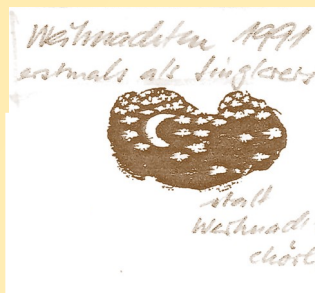 Weihnachten 1991
erstmals als Singkreis
statt
Weihnachts
chörl